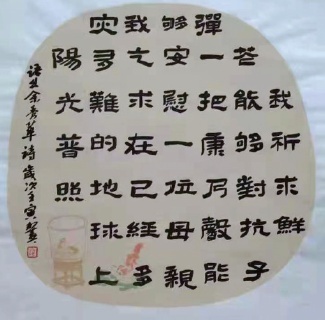 我祈求鮮
花能够對抗子
彈一把康乃馨能
够安慰一位母親
我乞求在已經多
灾多難的地球上
陽光普照
語出余秀華詩歲次壬寅